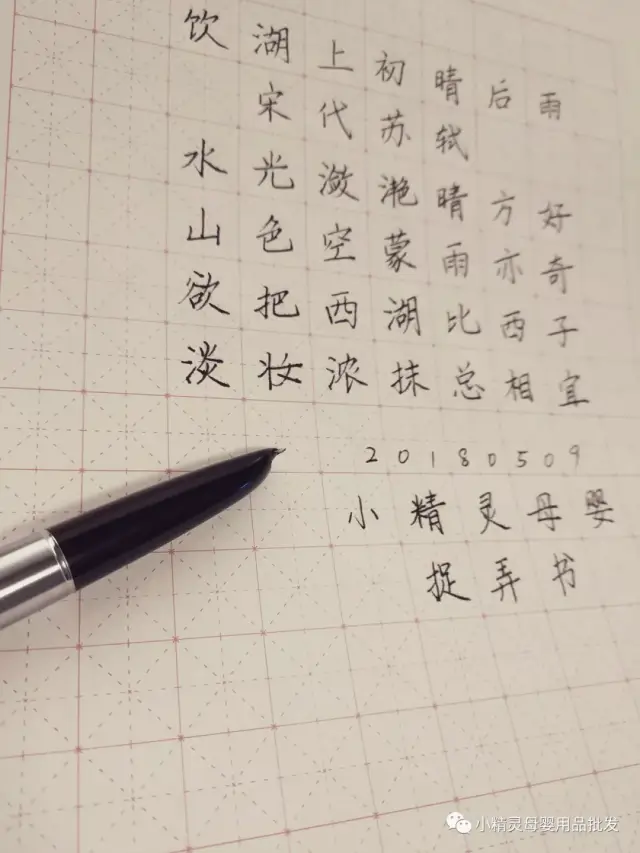 饮湖上初晴后雨
宋代苏轼
水光潋滟晴方好
山色空蒙雨亦奇
欲把西湖比西子
淡妆浓抹总相宜
20180509
小精灵母婴
捉弄书
小精灵母婴用品批发